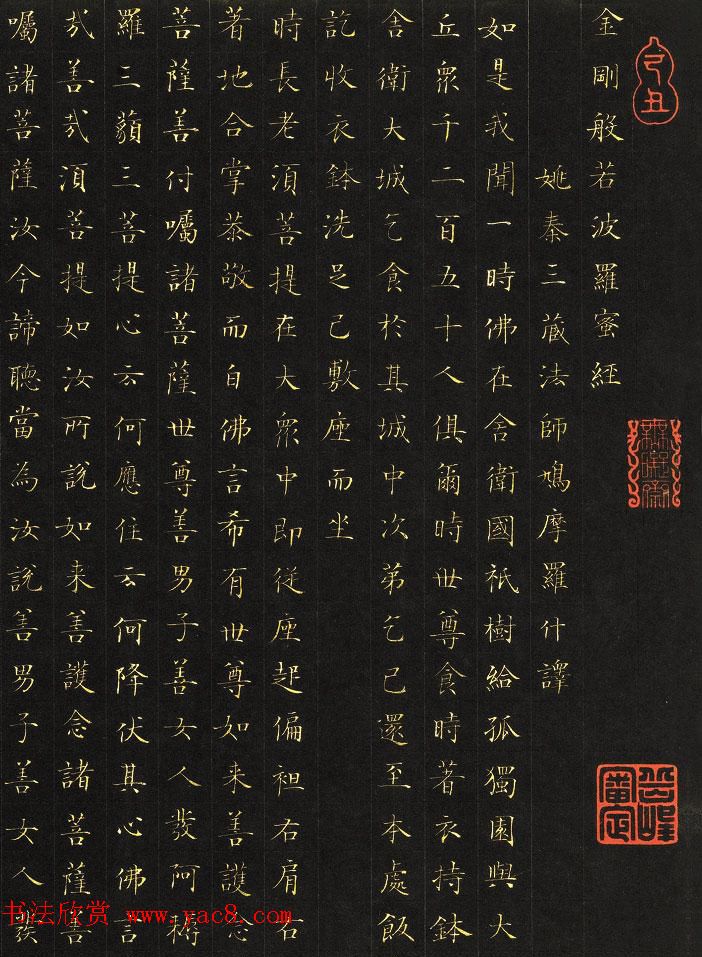 金剛般若波羅蜜經
姚秦三藏法師鳩摩羅什譯
如是我聞一時佛在舍衛國祇樹給孤獨園與大
丘眾千二百五十人俱爾時世尊食時著衣持鉢
舍衛大城乞食於其城中次第乞已還至本處飯
訖收衣鉢洗足已敷座而坐
時長老須菩提在大眾中即從座起偏袒右肩右
著地合掌恭敬而白佛言希有世尊如来善護念
菩薩善付囑諸菩薩世尊善男子善女人發阿耨
羅三藐三菩提心云何應住云何降伏其心佛言
哉善哉須菩提如汝所說如来善護念諸菩薩善
囑諸菩薩汝今諦聽當為汝說善男子善女人發
书法欣赏 www.yac8.com